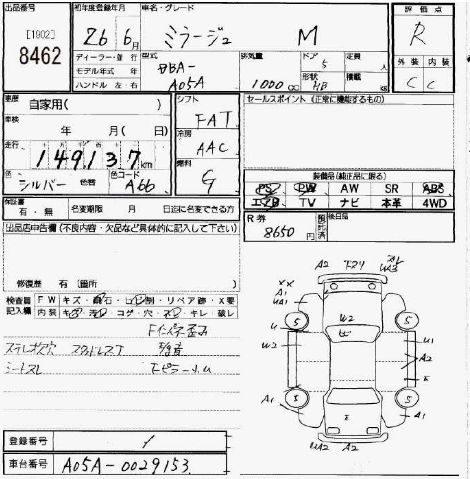 出品番号 初年度登録年月 車名・グレード 評価点
[1802]
8462
26年 6月 ミラージュ M R
ディーラー・並行 型式 排気量 ドア 定員
モデル年式 年 DBA- 5 人 外装 内装
ハンドル 左・右 A05A 1000cc 形状 HB 積載 kg C C
車歴 自家用( ) シフト セールスポイント (正常に機能するもの)
FAT
車検 年 月( 日) 冷房
AAC
走行 149,137km 燃料
G
色 シルバー 色替 色コード A66 装備品(純正品に限る)
PS PW AW SR ABS
エアB TV ナビ 本革 4WD
保証書 有・無 名変期限 月 日迄に名変できる方
R券 8650円 預託済 後日品
出品店申告欄(不良内容・欠品など具体的に記入して下さい)
修復歴 有〔箇所 〕
検査員記入欄 FW キズ・飛石・ヒビ割・リペア跡・X要
内装 キズ・汚レ・コゲ・穴・スレ・キレ・破レ
Fインパネ歪み
ステレオ欠穴 スタッドレスT 異音
シートスレ
A2 UA3
XX A1
UA1 A1
5 5
U W2 U
W2 U1
A2
E
A1 5 5 A1
E
UA2 A2
登録番号 /
車台番号 A05A-0029153